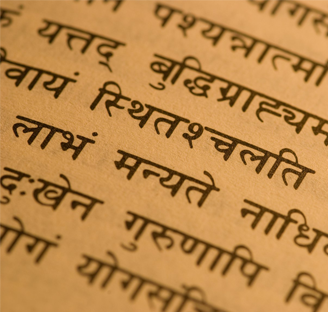 पश्यन्नात्म
यत्तद् बुद्धिग्राह्यम
वायं स्थितश्चलति
लाभं मन्यते नाधि
दुःखेन गुरुणापि वि
योगं